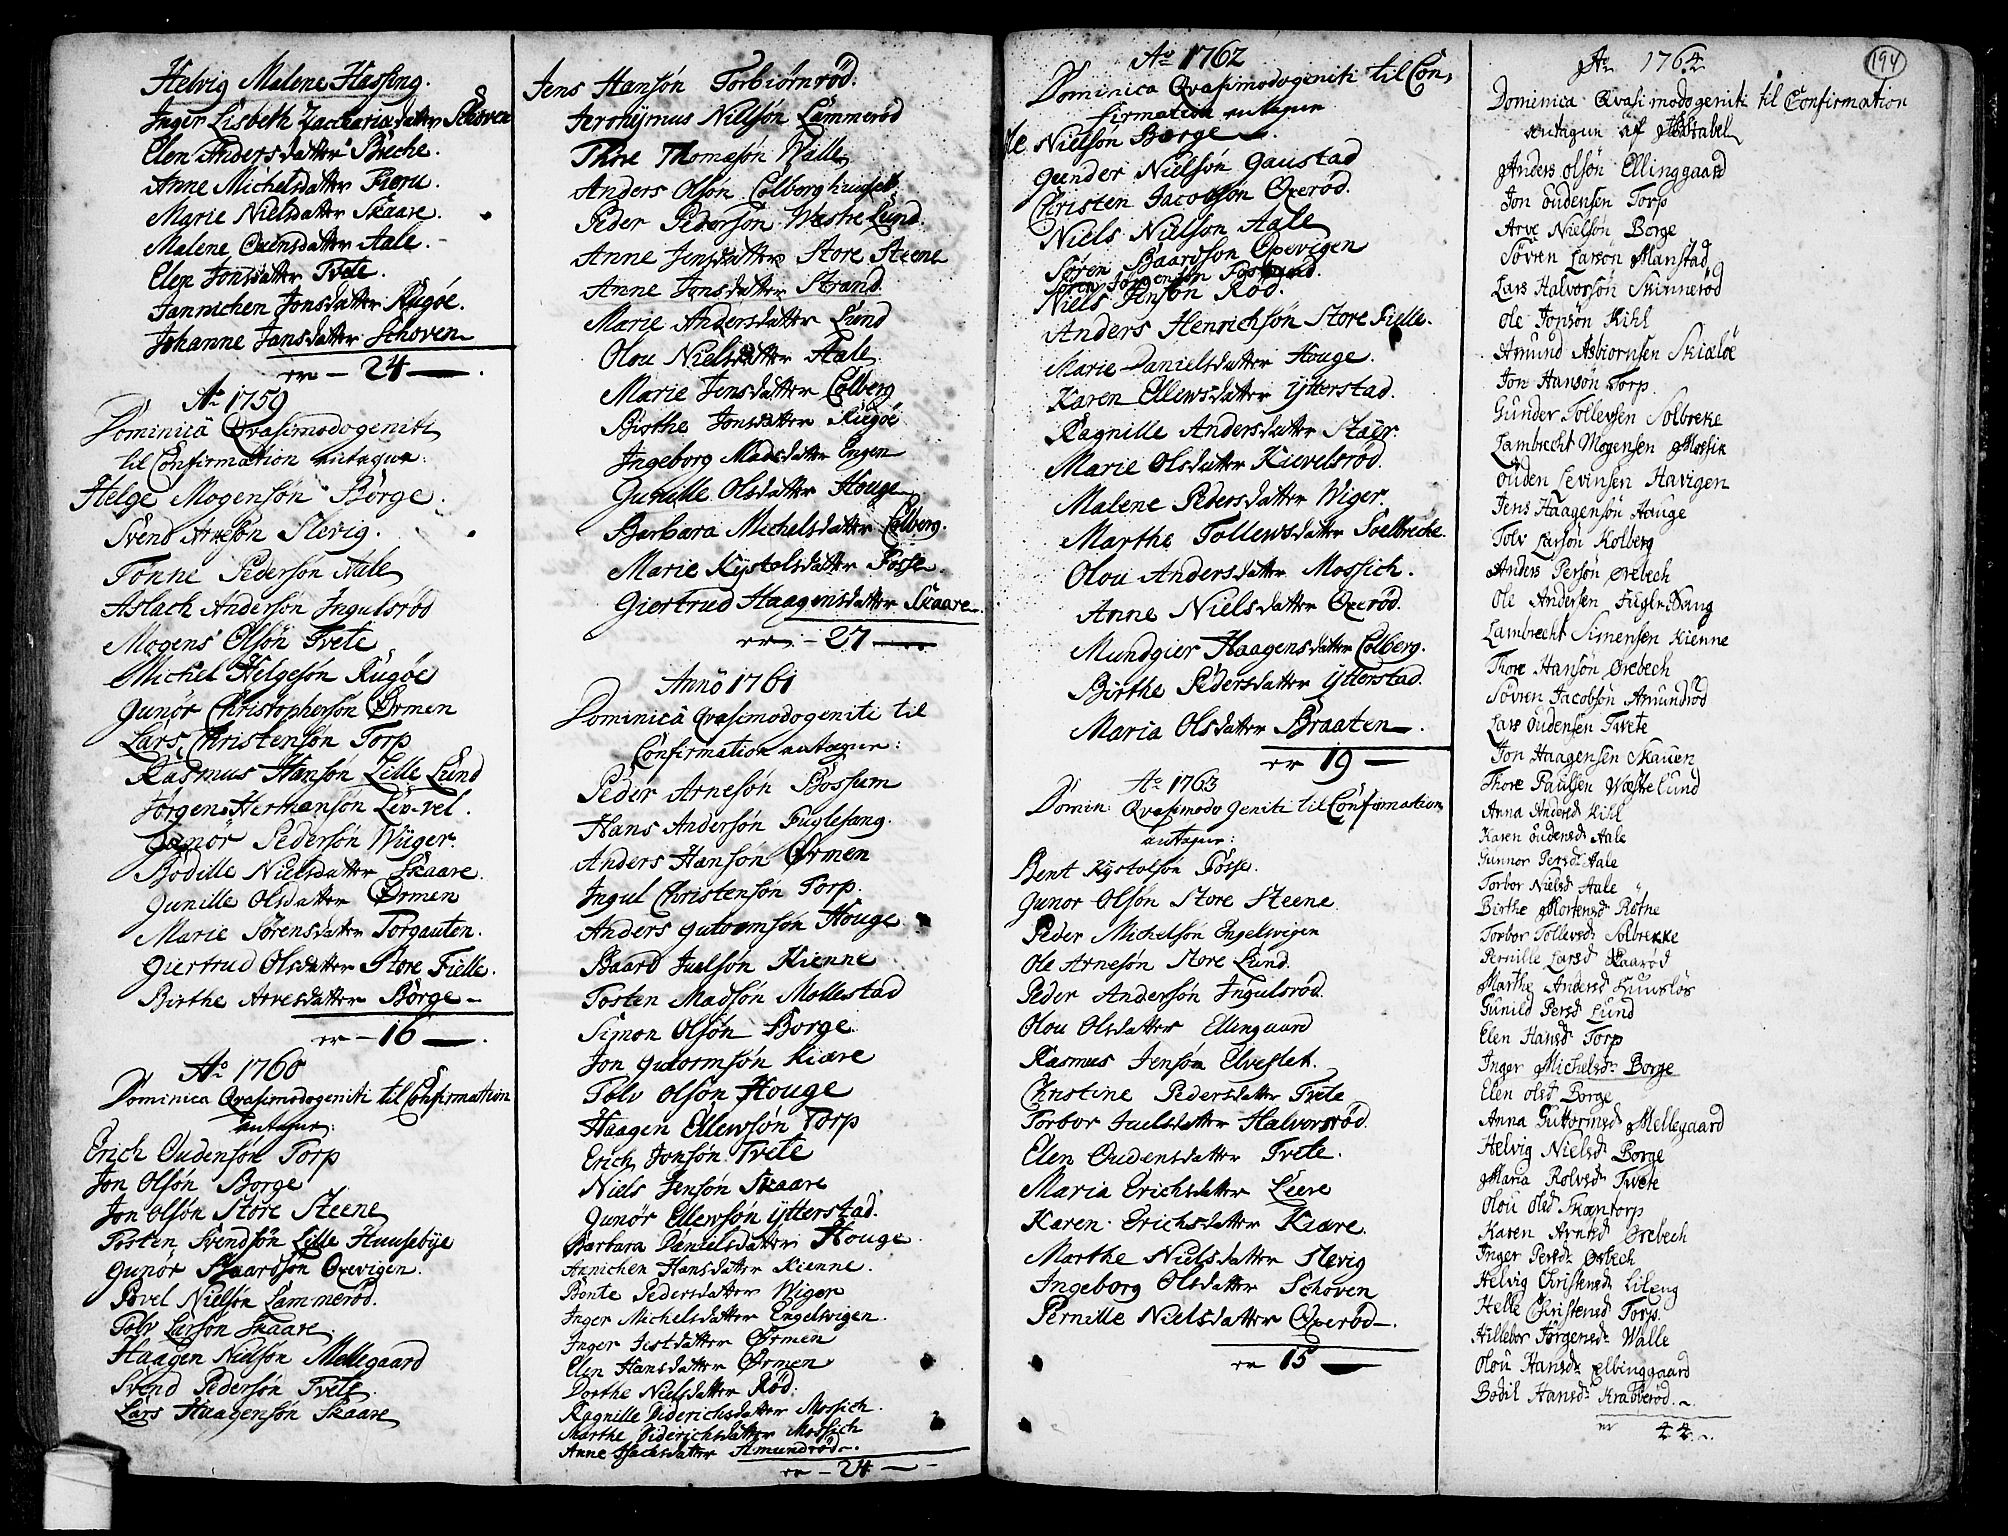 Helvig Malene Hassing.
Inger Lisbeth Zachariædatter Schoven
Elen Andersdatter Breche.
Anne Michelsdatter Fieru.
Marie Nielsdatter Skaare.
Malene Ovensdatter Aale.
Elen Jonsdatter Tvete.
Jannichen Jonsdatter Rugöe.
Johanne Jansdatter Schoven
er - 24
Ao 1759
Dominica Qvasimodogeniti
til Confirmation antagne:
Helge Mogensön Börge.
Svend Arnesön Slevig.
Tonne Pedersön Aale
Aslach Andersön Ingulsröd
Mogens Olsön Tvete
Michel Helgesön Rugöe
Gunör Christophersön Örmen
Lars Christensön Torp
Rasmus Hansön Lille Lund
Jörgen Hermansön Lervel.
Gunör Pedersön Wiiger.
Bodille Nielsdatter Skaare.
Gunille Olsdatter Ørmen
Marie Sörensdatter Torgauten.
Giertrud Olsdatter Store Fielle.
Birthe Arvesdatter Börge
er - 16
Ao 1760
Dominica Qvasimodogeniti til Confirmation
antagne:
Erich Oudensön Torp
Jon Olsön Borge
Jon Olsön Store Steene
Tosten Svendsön Lille Huusebÿe
Gunör Baardsön Oxevigen.
Povel Nielsön Lammeröd.
Tolv Larsön Skaare
Haagen Nielsön Mellegaard
Svend Pedersön Tvete.
Lars Haagensön Skaare
Jens Hansön Torbiörnröd.
Jeronÿmus Nillsön Lammeröd
Thore Thomasön Walle
Anders Olsön Colberg
Peder Pedersön Westre Lund.
Anne Jensdatter Store Steene
Anne Jonsdatter Strand.
Marie Andersdatter Lund
Olou Nielsdatter Aale.
Marie Jensdatter Colberg
Birthe Jonsdatter Rugöe
Ingeborg Madsdatter Engen
Gunille Olsdatter Houge
Barbara Michelsdatter Colberg.
Marie Kystolsdatter Fosse.
Giertrud Haagensdatter Skaare.
er - 27
Anno 1761
Dominica Qvasimodogeniti til
Confirmation antagne:
Peder Arnesön Bossum
Hans Andersön Fuglesang.
Anders Hansön Ørmen
Ingul Christensön Torp.
Anders Gutormsön Houge
Baard Juelsön Kienne
Tosten Madsön Mollestad
Simon Olsön Borge
Jon Gutormsön Kiære
Tolv Olsön Houge
Haagen Ellewsön Torp
Erich Jonsön Tvete
Niels Jensön Skaare
Gunör Ellewsön Ÿtterstad.
Barbara Danielsdatter Houge.
Annichen Hansdatter Kienne.
Bente Pedersdatter Wiger
Inger Michelsdatter Engelsvigen.
Inger Jestdatter Örmen
Elen Hansdatter Ørmen
Dorthe Nielsdatter Röd.
Ragnille Diderichsdatter Mossich.
Marthe Diderichsdatter Mossich
Anne Isachsdatter Amundröd.
er - 24
Ao 1762
Dominica Qvasimodogeniti til Con-
firmation antagne
Ole Nielsön Børge.
Gunder Nielsön Gaustad
Christen Jacobsön Oxeröd.
Niels Nielsön Aale
Sören Baardsön Oxevigen
Niels Jensön Röd.
Anders Henrichsön Store Fielle.
Marie Danielsdatter Houge.
Karen Ellewsdatter Ÿtterstad.
Ragnille Andersdatter Staur.
Marie Olsdatter Kievelsröd.
Malene Pedersdatter Wiger.
Marthe Tollewsdatter Soelbreche.
Olou Andersdatter Mossich.
Anne Nielsdatter Oxeröd.
Mundgier Haagensdatter Colberg.
Birthe Pedersdatter Ÿtterstad.
Maria Olsdatter Braaten.
er 19
Ao 1763
Domin: Qvasimodogeniti til Confirmation
antagne:
Bent Kystolsön Fosse.
Gunor Olsön Store Steene.
Peder Michelsön Engelsvigen
Ole Arnesön Store Lund.
Peder Andersön Ingulsröd.
Olou Olsdatter Ellingaard
Rasmus Jensön Elveslet.
Christine Pedersdatter Tvete
Torbor Juelsdatter Halvorsröd.
Elen Oudensdatter Tvete.
Maria Erichsdatter Leere
Karen Erichsdatter Kiære.
Marthe Nielsdatter Slevig
Ingeborg Olsdatter Schoven
Pernille Nielsdatter Oxeröd.
er 15
194
Ao 1764
Dominica Qvasimodogeniti til Confirmation
antagne af
Anders Olsön Ellinggaard
Jon Oudensen Torp
Arve Nielsön Borge
Sören Larsön Manstad
Lars Halvorsön Skinneröd
Ole Jonsön Kihl
Amund Asbiornsen Skielöe
Jon Hansön Torp.
Gunder Tollevsen Solbreke
Lambrecht Mogensen Mossik
Ouden Levinsen Havigen
Jens Haagensön Houge
Tolv Larsön Kolberg
Anders Persön Ørebech
Ole Andersen Fuglesang
Lambrecht Simensen Kienne
Thore Hansön Ørebech
Sören Jacobsön Amundröd
Lars Oudensen Tvete
Jon Haagensen Skauen
Thore Paulsen Westelund
Anna Andersd Kihl
Karen Oudensd Aale
Gunnor Persd: Aale
Torbor Nielsd Aale
Birthe Mortensd Röthe
Torbor Tollevsd: Solbrekke
Pernille Larsd
Marthe Andersd Huusløs
Gunild Persd Lund
Elen Hansd Torp
Inger Michelsd: Borge
Elen Olsd Borge
Anna Guttormsd Mellegaard
Helvig Nielsd Borge
Maria Rolvsd Tvete
Olou Olsd
Karen Arnesd Ørebech
Inger Persd: Ørebech
Helvig Christensd Lileng
Helle Christensd Torp.
Hillebor Jörgensd: Walle
Olou Hansd: Elbinggaard
Bodil Hansd: Krabberöd.
er 44